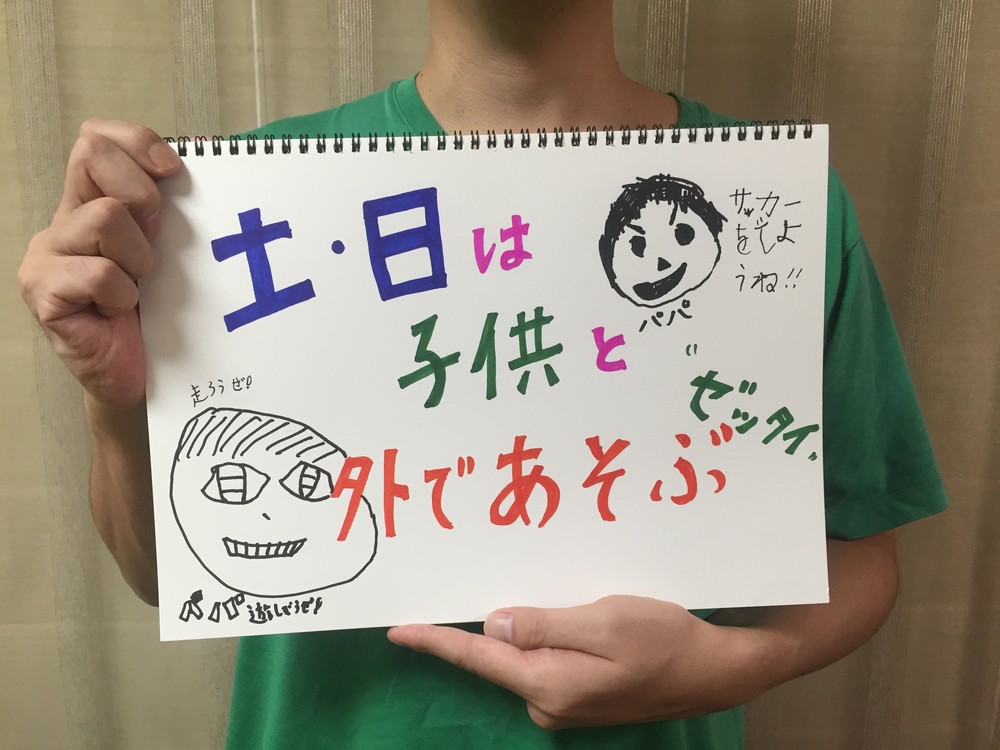 土・日は
サッカー
をしよ
うね!!
パパ
子供と
"ゼッタイ"
走ろうぜ!
外であそぶ
パパ